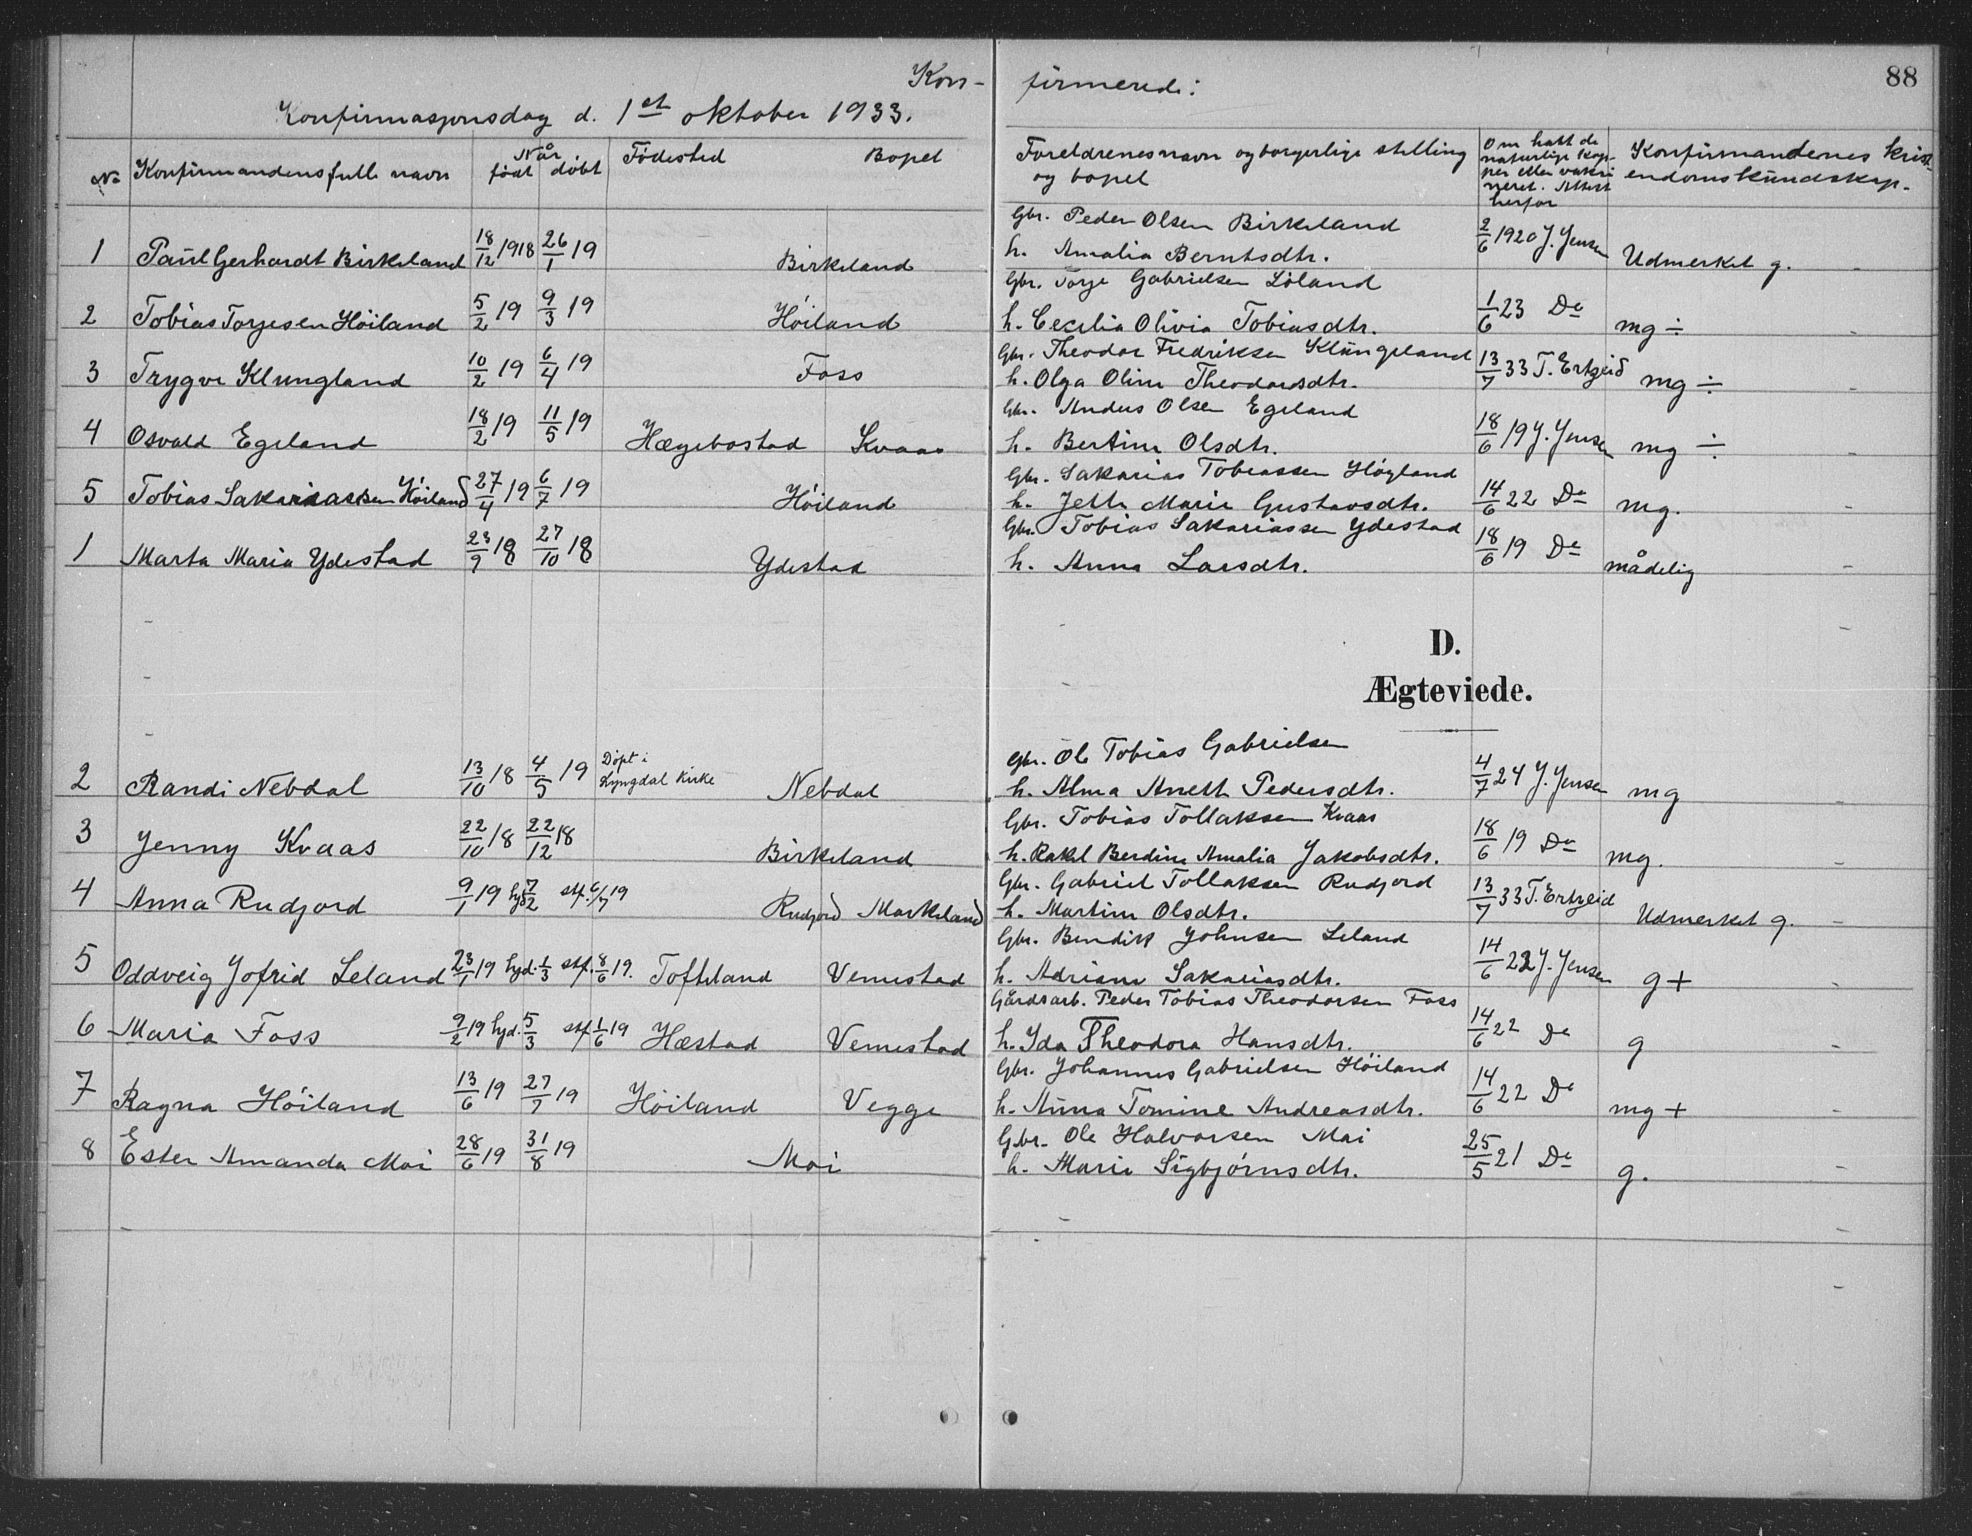 Kon- firmerede: 88
Konfirmasjonsdag d. 1st oktober 1933.
No Konfirmandens fulle navn Når født døbt Fødested Bopel Foreldrenes navn og borgerlige stilling og bopel Om hatt de naturlige kopper eller vaksineret. Attest herfor Konfirmandenes kristendomskundskap.
Gbr. Peder Olsen Birkeland
1 Paul Gerhardt Birkeland 18/12 1918 26/1 19 Birkeland h. Amalia Berntsdtr. 2/6 1920 J. Jensen Udmerket g.
Gbr. Torje Gabrielsen Löland
2 Tobias Torjesen Höiland 5/2 19 9/3 19 Höiland h. Cecilia Olivia Tobiasdtr. 1/6 23 Do mg ÷
Gbr. Theodor Fredriksen Klungeland
3 Trygve Klungland 10/2 19 6/4 19 Foss h. Olga Oline Theodorsdtr. 13/7 33 T. Ertzeid mg ÷
Gbr. Anders Olsen Egeland
4 Osvald Egeland 18/2 19 11/5 19 Hægebostad Kvaas h. Bertine Olsdtr. 18/6 19 J. Jensen mg ÷
Gbr. Sakarias Tobiassen Höyland
5 Tobias Sakariassen Höiland 27/4 19 6/7 19 Höiland h. Jette Marie Gustavsdtr. 14/6 22 Do mg.
Gbr. Tobias Sakariassen Ydestad
1 Marta Maria Ydestad 23/9 18 27/10 18 Ydestad h. Anna Larsdtr. 18/6 19 Do mådelig
D.
Ægteviede.
Gbr. Ole Tobias Gabrielsen
2 Randi Nebdal 13/10 18 4/5 19 Døpt i Lyngdal Kirke Nebdal h. Alma Anette Pedersdtr. 4/7 24 J. Jensen mg
Gbr. Tobias Tollaksen Kvaas
3 Jenny Kvaas 22/10 18 22/12 18 Birkeland h. Rakel Berdine Amalia Jakobsdtr. 18/6 19 Do mg.
Gbr. Gabriel Tollaksen Rudjord
4 Anna Rudjord 9/1 19 hjd 7/2 stf. 6/7 19 Rudjord Markeland h. Martine Olsdtr. 13/7 33 T. Ertzeid Udmerket g.
Gbr. Bendik Johnsen Leland
5 Oddveig Jofrid Leland 23/1 19 hjd. 1/3 stf. 8/6 19. Tofteland Vemestad h. Adriane Sakariasdtr. 14/6 22 J. Jensen g +
Gårdsarb. Peder Tobias Theodorsen Foss
6 Maria Foss 9/2 19 hjd. 5/3 stf 1/6 19 Hæstad Vemestad h. Ida Theodora Hansdtr. 14/6 22 Do g
Gbr. Johannes Gabrielsen Höiland
7 Ragna Höiland 13/6 19 27/7 19 Höiland Vegge h. Anna Tomine Andreasdtr. 14/6 22 Do mg +
Gbr. Ole Halvorsen Moi
8 Ester Amanda Moi 28/6 19 31/8 19 Moi h. Marie Sigbjörnsdtr. 25/5 21 Do g.